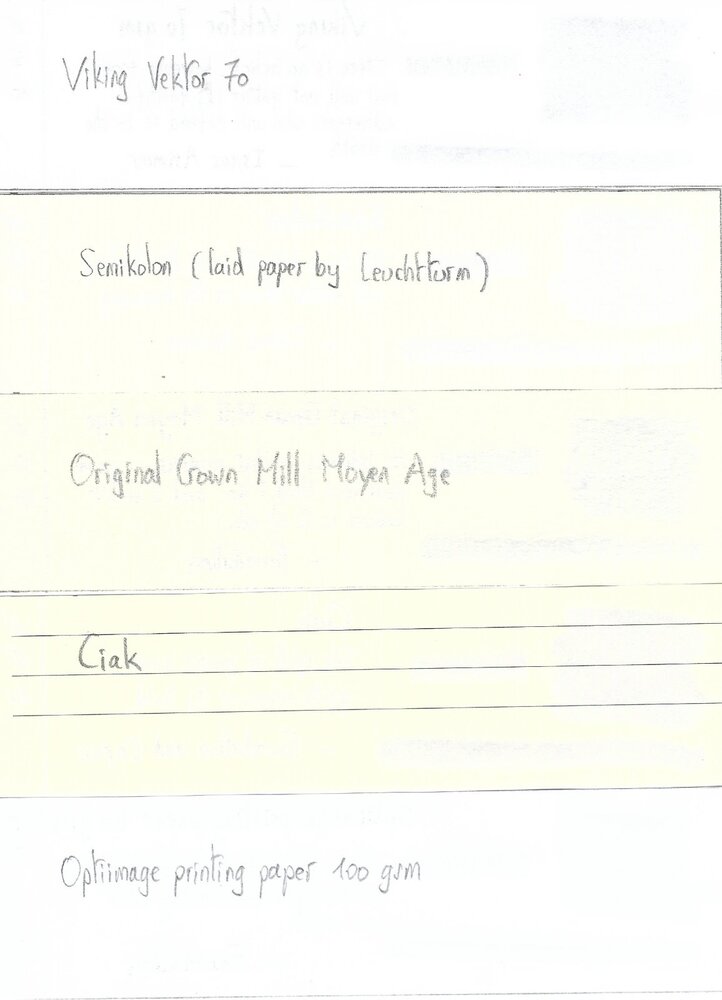 Viking Vektor 70
Semikolon (laid paper by Leuchtturm)
Original Crown Mill Moyen Age
Ciak
Optiimage printing paper 100 gsm